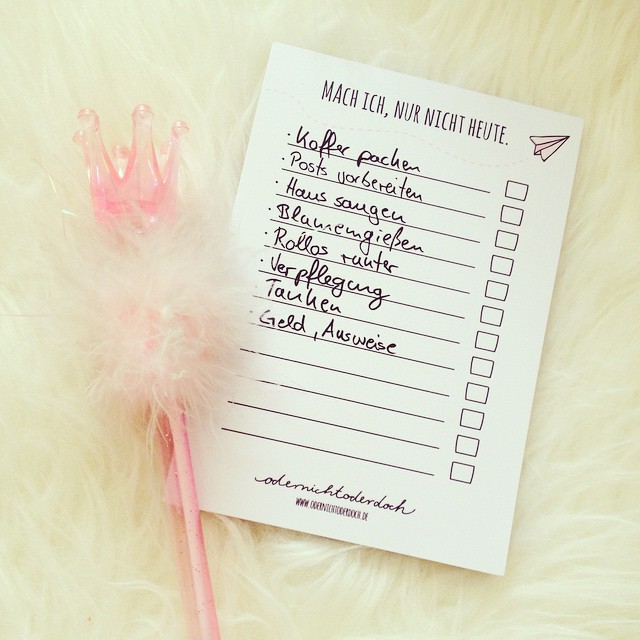 MACH ICH, NUR NICHT HEUTE.
· Koffer packen
· Posts vorbereiten
· Haus saugen
· Blumengießen
· Rollos runter
· Verpflegung
Tanken
Geld, Ausweise
odernichtoderdoch
WWW.ODERNICHTODERDOCH.DE